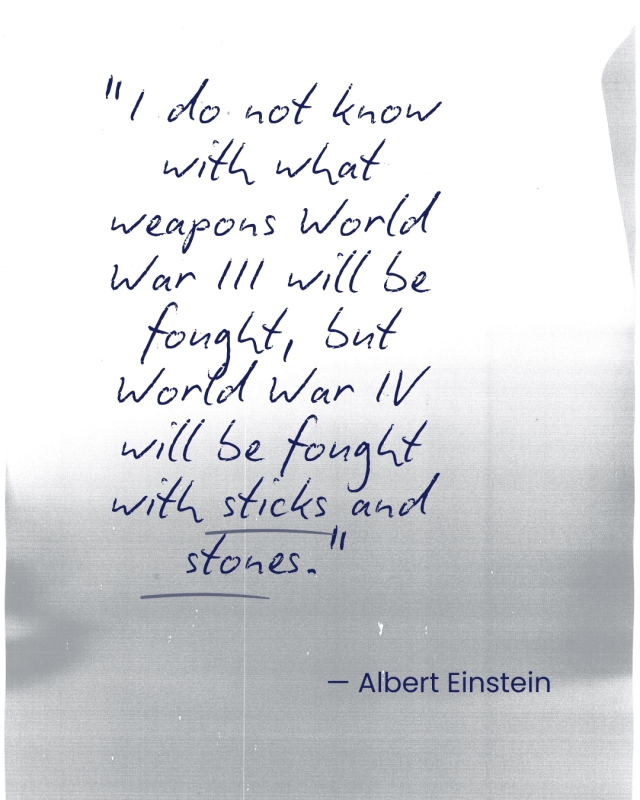 "I do not know
with what
weapons World
War III will be
fought, but
World War IV
will be fought
with sticks and
stones."
— Albert Einstein